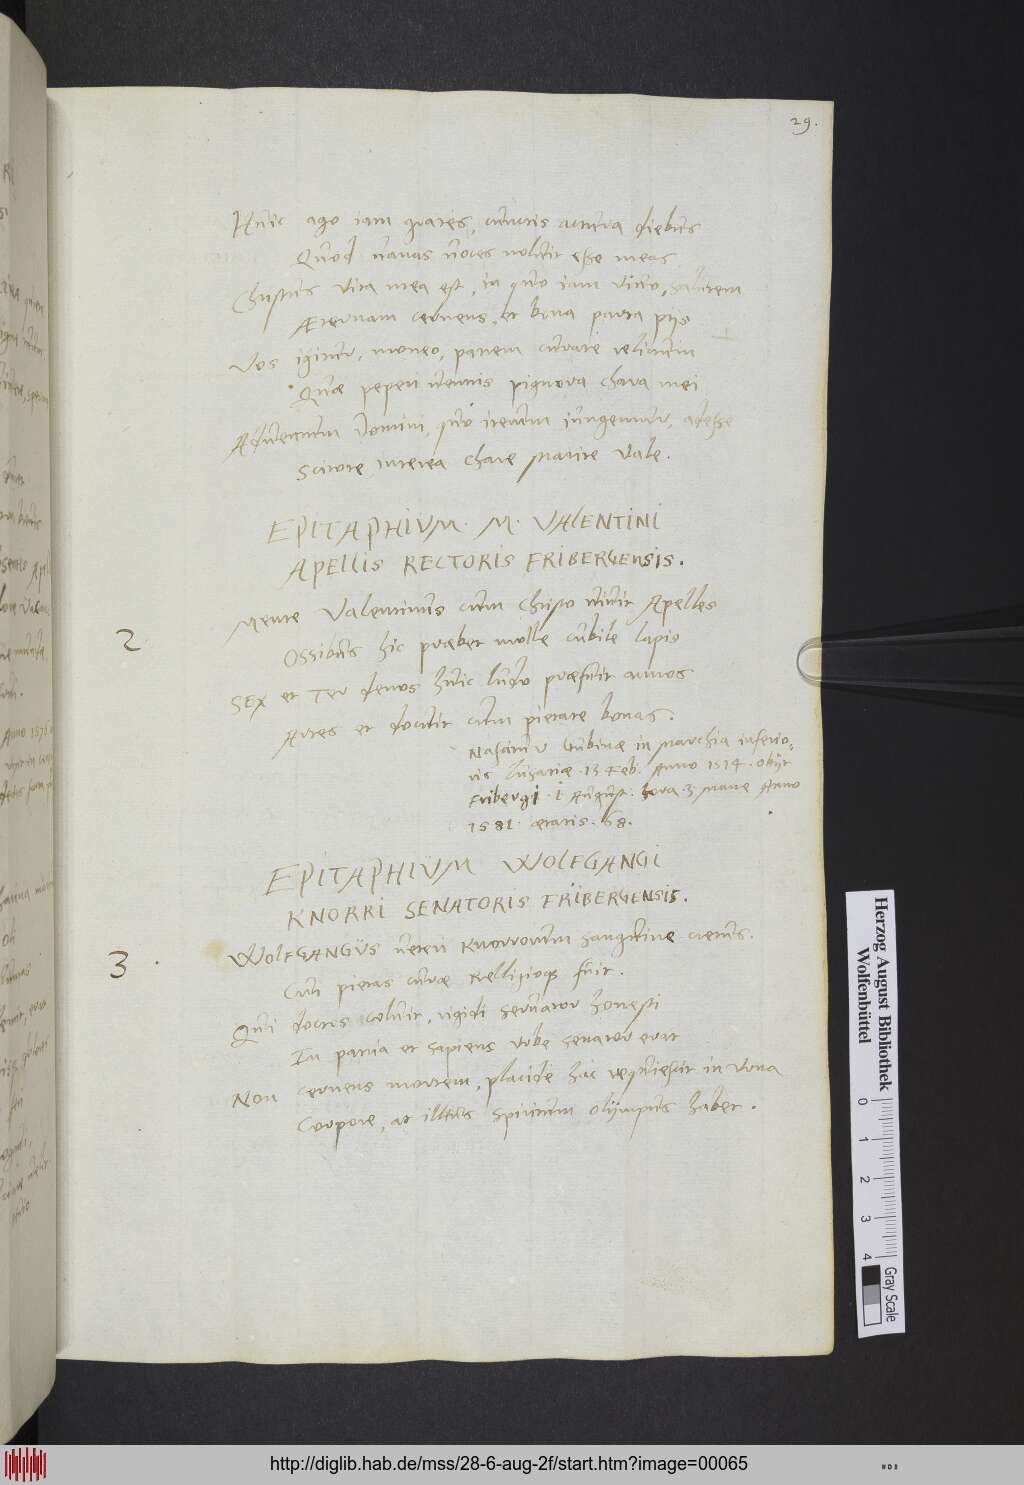 29.
Huic ago iam grates, cunctis actura diebus
Quod vanas voces noluit esse meas
Christus vita mea est, in quo iam vivo, salutem
Æternam cernens, et bona parta piis
Vos igitur, moneo, pacem curate relictum
Quæ peperi vennis pignora chara mei
Adventum Domini, quo iterum iungemur, adesse
Scitote interea chare marite vale.
EPITAPHIVM. M. VALENTINI
APELLIS RECTORIS FRIBERGENSIS.
2
Mente Valentinus cum Christo vivit Apelles
Ossibus hic præbet molle cubile lapis
SEX et Ter denos huic ludo præfuit annos
Artes et docuit cum pietate bonas.
Nascitur Gubinæ in Marchia inferio=
ris Lusatiæ. 13 Feb. Anno 1514. obiit
Fribergi. 1 August. hora. 3 mane Anno
1581. ætatis. 68.
EPITAPHIVM WOLFGANGI
KNORRI SENATORIS FRIBERGENSIS.
3
WOLFGANGUS veteri Knorrorum sanguine cretus.
Cui pietas curæ Relligioque fuit.
Qui doctos coluit, rigidi servator honesti
In patria et sapiens urbe senator erat
Non cernens mortem, placide hac requiescit in urna
Corpore, at illius spiritum olympus habet.
Herzog August Bibliothek
Wolfenbüttel
0 1 2 3 4
Gray Scale
http://diglib.hab.de/mss/28-6-aug-2f/start.htm?image=00065